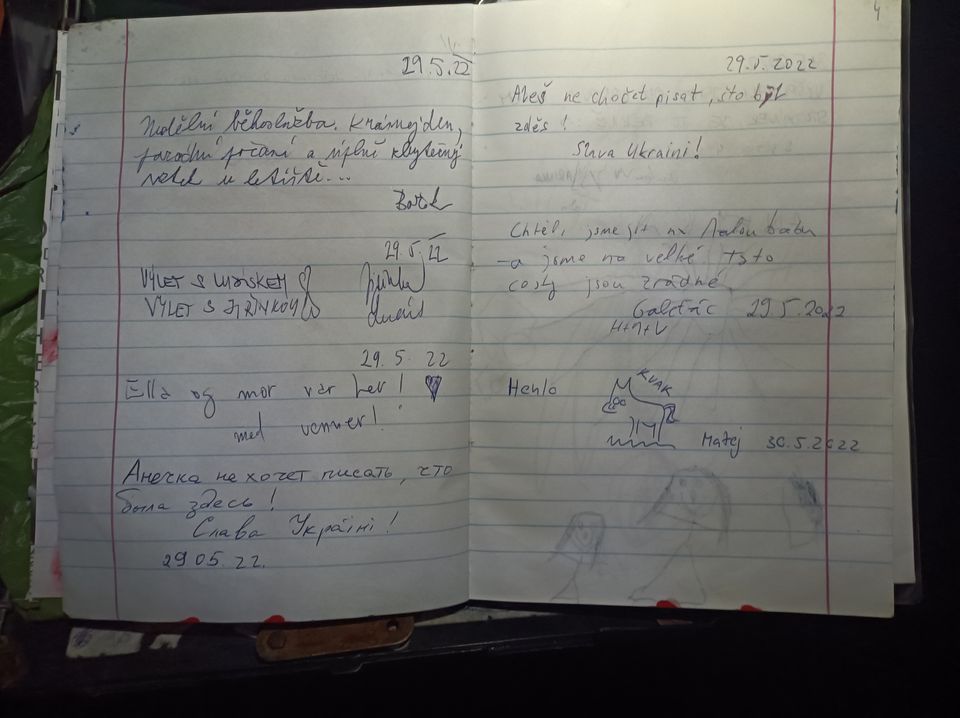 29.5.22
Nedělní běhoslužba. Krásnej den,
parádní počasí a úplně zbytečný
u letiště...
29.5.22
VÝLET S LUKÁSKEM
VÝLET S JIŘINKOU
29.5.22
Ella og mor var her! ♥
med venner!
Анечка не хочет писать, что
была здесь!
Слава Україні!
29.05.22.
4
29.5.2022
Aleš ne chočet pisat, što był
zděs!
Slava Ukraini!
Chtěli jsme jít na Malou babu
-a jsme na velké, tyto
cesty jsou zrádné.
29.5.2022
H+M+V
Henlo
KVAK
Matej 30.5.2022